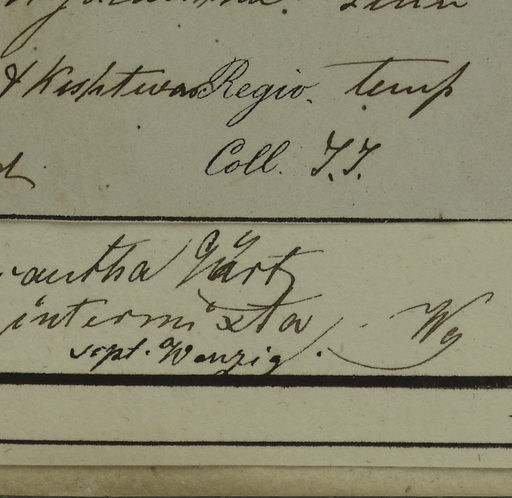 & Kishtwar Regio. temp
Coll. T.T.
Gärt
intermixta
sept. Wenzig. Wg